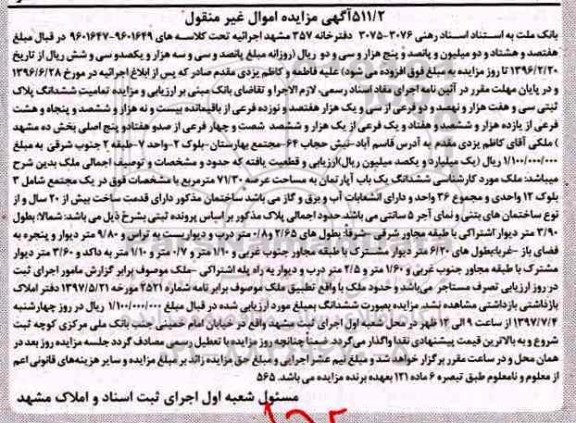 ۵۱۱/۲آگهی مزایده اموال غیر منقول
بانک ملت به استناد اسناد رهنی ۳۰۷۶-۳۰۷۵ دفترخانه ۲۵۷ مشهد اجرائیه تحت کلاسه های ۹۶۰۱۶۴۹-۹۶۰۱۶۴۷ در قبال مبلغ
هفتصد و هشتاد و دو میلیون و پانصد و پنج هزار و سی و دو ریال (روزانه مبلغ پانصد و سی و سه هزار و یکصدو سی و شش ریال از تاریخ
۱۳۹۶/۲/۲۰ تا روز مزایده به مبلغ فوق افزوده می شود) علیه فاطمه و کاظم یزدی مقدم صادر که پس از ابلاغ اجرائیه در مورخ ۱۳۹۶/۶/۲۸
و در پایان مهلت مقرر در آئین نامه اجرای مفاد اسناد رسمی، لازم الاجرا و تقاضای بانک مبنی بر ارزیابی و مزایده تمامیت ششدانگ پلاک
ثبتی سی و هفت هزار و نهصد و دو فرعی از سی و یک هزار هفتصد و نوزده فرعی از باقیمانده بیست و نه هزار و ششصد و پنجاه و هشت
فرعی از یازده هزار و ششصد و هفتاد و یک فرعی از یک هزار و ششصد شصت و چهار فرعی از صدو هفتادو پنج اصلی بخش ده مشهد
) ملکی آقای کاظم یزدی مقدم به آدرس قاسم آباد-نبش حجاب ۶۴-مجتمع بهارستان-بلوک ۲-واحد ۷-طبقه ۲ جنوب شرقی به مبلغ
۱/۱۰۰/۰۰۰/۰۰۰ ریال (یک میلیارد و یکصد میلیون ریال)ارزیابی و قطعیت یافته که حدود و مشخصات و توصیف اجمالی ملک بدین شرح
میباشد: ملک مورد کارشناسی ششدانگ یک باب آپارتمان به مساحت عرصه ۷۱/۳۰ مترمربع با مشخصات فوق در یک مجتمع شامل ۳
بلوک ۱۲ واحدی و مجموع ۳۶ واحد و دارای انشعابات آب و برق و گاز می باشد ساختمان مذکور دارای قدمت ساخت بیش از ۲۰ سال و از
نوع ساختمان های بتنی و نمای آجر ۵ سانتی می باشد. حدود اجمالی پلاک مذکور بر اساس پرونده ثبتی بشرح ذیل می باشد: شمالا: بطول
۳/۹۰ متر دیوار اشتراکی با طبقه مجاور شرقی -شرقاً: بطول های ۲/۶۵ و ۰/۸ متر درب و دیواریست به تراس و ۹/۸۰ متر دیوار و پنجره به
فضای باز -غربا:بطول های ۶/۲۰ متر دیوار مشترک با طبقه مجاور جنوب غربی و ۱/۱۰ متر و ۰/۷ متر و ۱/۱۰ متر به داکد و ۳/۶۰ متر دیوار
مشترک با طبقه مجاور جنوب غربی و ۱/۶۰ متر و ۲/۵ متر درب و دیوار به راه پله اشتراکی -ملک موصوف برابر گزارش مامور اجرای ثبت
در روز ارزیابی تصرف مستاجر می‌باشد و حدود ملک با واقع تطبیق ملک موصوف برابر نامه شماره ۲۵۲۱ مورخه ۱۳۹۷/۵/۲۱ دفتر املاک
بازداشتی بازداشتی مشاهده نشد. مزایده بصورت ششدانگ بمبلغ مورد ارزیابی شده در قبال مبلغ ۱/۱۰۰/۰۰۰/۰۰۰ ریال در روز چهارشنبه
۱۳۹۷/۷/۴ از ساعت ۹ الی ۱۲ ظهر در محل شعبه اول اجرای ثبت مشهد واقع در خیابان امام خمینی جنب بانک ملی مرکزی کوچه ثبت
شروع و به بالاترین قیمت پیشنهادی نقدا واگذار می گردد. ضمنا چنانچه روز مزایده با تعطیل رسمی مصادف گردد جلسه مزایده روز بعد در
همان محل و در ساعت مقرر برگزار خواهد شد و مبلغ نیم عشر اجرایی و مبلغ حق مزایده زائد بر مبلغ مزایده و سایر هزینه‌های قانونی اعم
از معلوم و نامعلوم طبق تبصره ۶ ماده ۱۲۱ بعهده برنده مزایده می باشد. ۵۶۵
مسئول شعبه اول اجرای ثبت اسناد و املاک مشهد